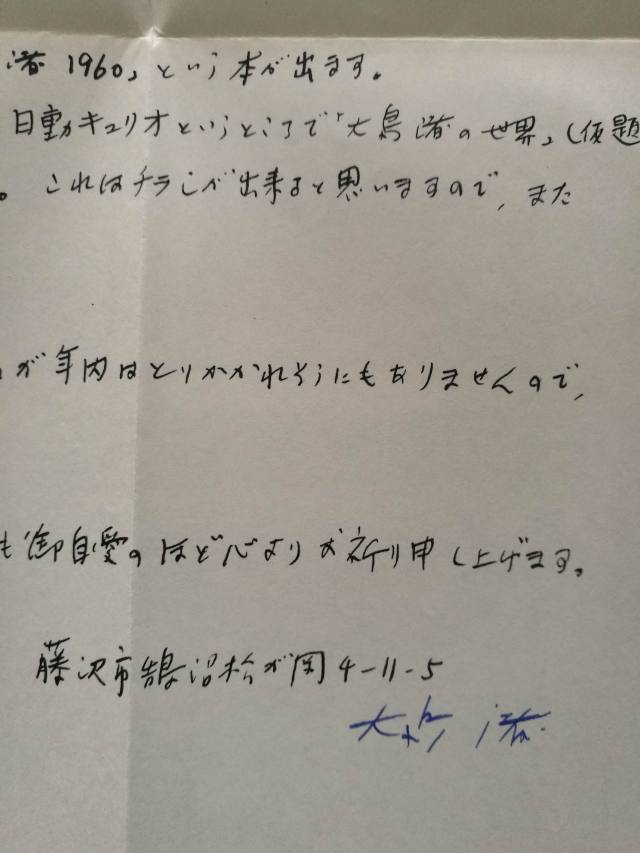 渚 1960」という本が出ます。
日動キュリオというところで「大島渚の世界」(仮題
。これはチラシが出来ると思いますので、また
が年内はとりかかれそうにもありませんので、
も御自愛のほど心よりお祈り申し上げます。
藤沢市鵠沼松が岡4-11-5
大島 渚